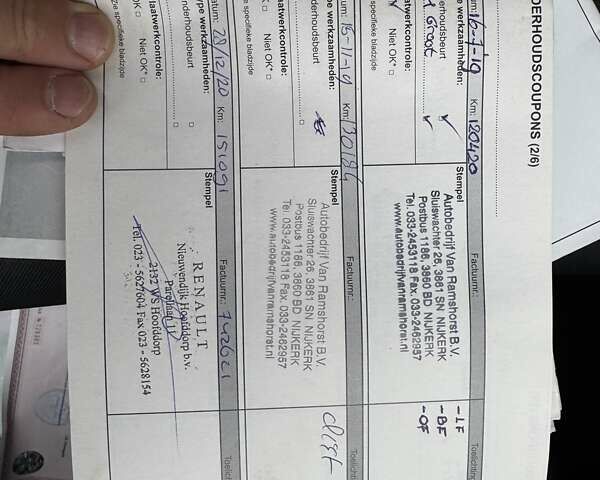 DERHOUDSCOUPONS (2/6)
tum: 16-7-19 Km: 120420
pe werkzaamheden:
derhoudsbeurt
Groot
aatwerkcontrole:
Niet OK*
e specifieke bladzijde
Stempel Factuurnr.: Toelichting
Autobedrijf Van Ramshorst B.V.
Sluiswachter 26, 3861 SN NIJKERK
Postbus 1186, 3860 BD NIJKERK
Tel. 033-2453118 Fax. 033-2462957
www.autobedrijfvanramshorst.nl
- LF
- BF
- OF
tum: 15-11-19 Km: 130184
pe werkzaamheden:
derhoudsbeurt
laatwerkcontrole:
Niet OK*
ie specifieke bladzijde
Stempel Factuurnr.: Toelichting
Autobedrijf Van Ramshorst B.V.
Sluiswachter 26, 3861 SN NIJKERK
Postbus 1186, 3860 BD NIJKERK
Tel. 033-2453118 Fax. 033-2462957
www.autobedrijfvanramshorst.nl
tum: 23/12/20 Km: 151091
ype werkzaamheden:
nderhoudsbeurt
laatwerkcontrole:
Niet OK*
ie specifieke bladzijde
Stempel Factuurnr.: 742621 Toelichti
RENAULT
Nieuwendijk Hoofddorp b.v.
Parellaan 11
2132 WS Hoofddorp
Tel. 023 - 5627604 Fax 023 - 5628154